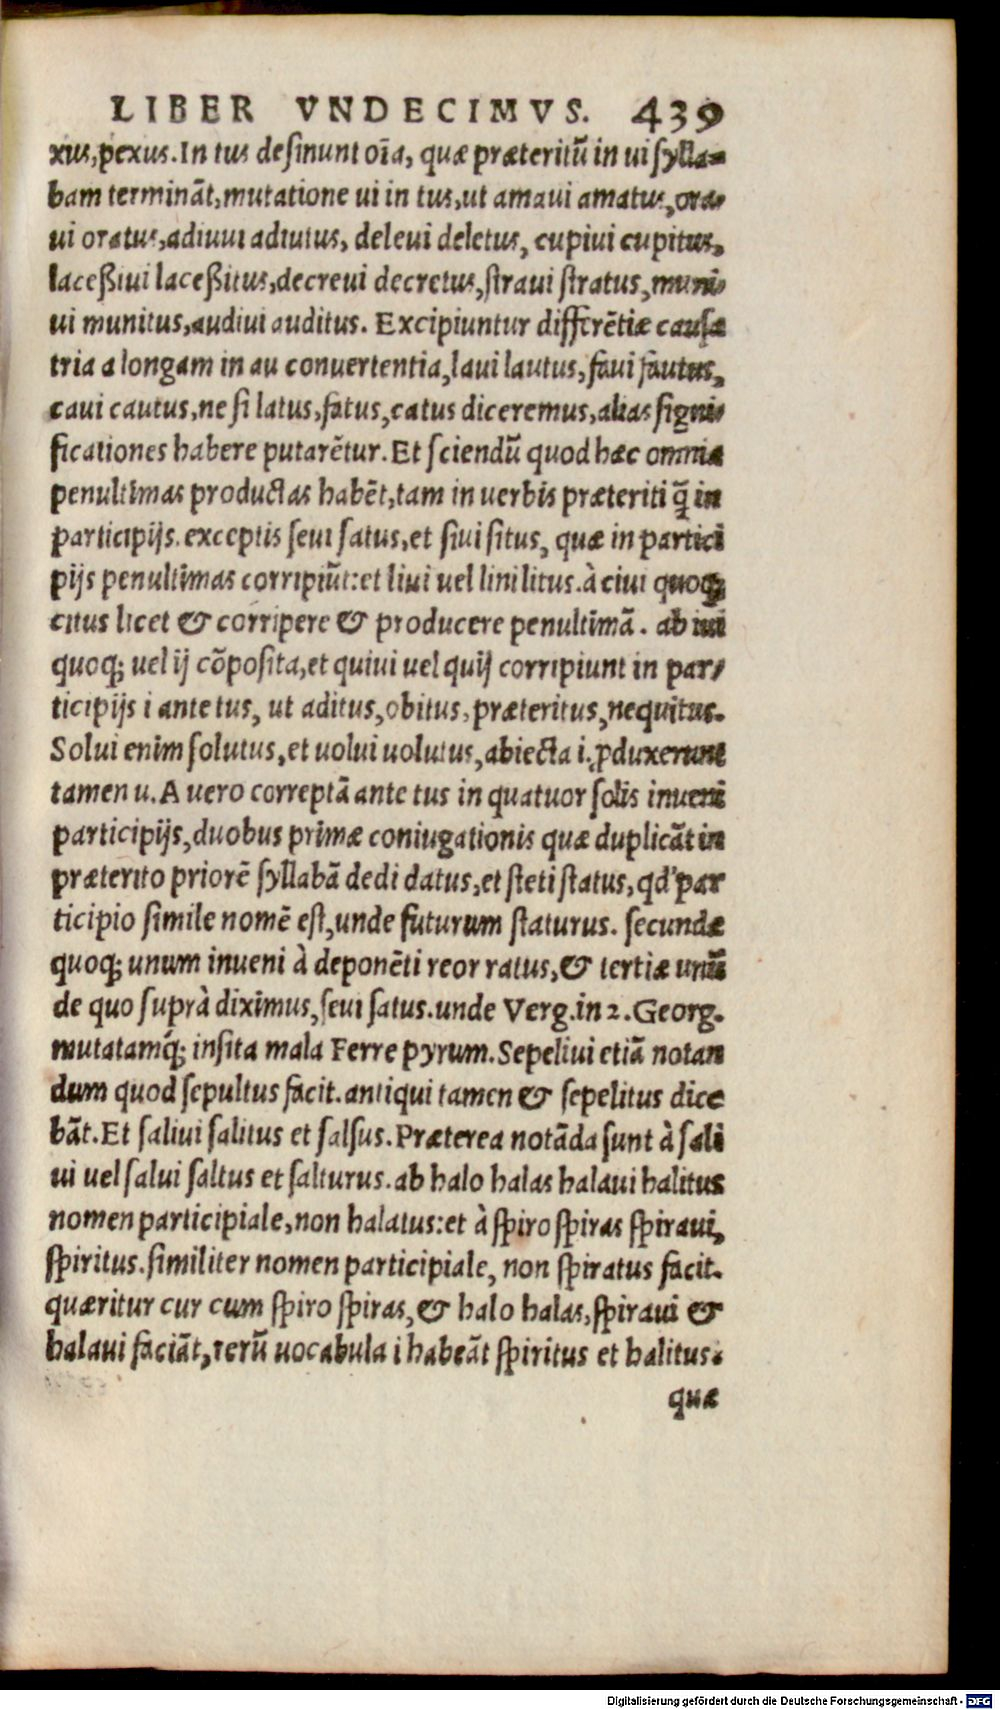 LIBER VNDECIMVS. 439
xus, pexus. In tus desinunt oīa, quæ præteritū in ui sylla-
bam terminãt, mutatione ui in tus, ut amaui amatus, ora-
ui oratus, adiuui adiutus, deleui deletus, cupiui cupitus,
laceßiui laceßitus, decreui decretus, straui stratus, muni-
ui munitus, audiui auditus. Excipiuntur differẽtiæ causa
tria a longam in au conuertentia, laui lautus, faui fautus,
caui cautus, ne si latus, fatus, catus diceremus, alias signi-
ficationes habere putarẽtur. Et sciendū quod hæc omnia
penultimas productas habẽt, tam in uerbis præteriti q̃ in
participijs. exceptis seui satus, et siui situs, quæ in partici
pijs penultimas corripiūt: et liui uel lini litus. à ciui quoq;
citus licet & corripere & producere penultimã. ab iui
quoq; uel ij cõposita, et quiui uel quij corripiunt in par-
ticipijs i ante tus, ut aditus, obitus, præteritus, nequitus.
Solui enim solutus, et uolui uolutus, abiecta i, ꝓduxerunt
tamen u. A uero correptã ante tus in quatuor solis inueni
participijs, duobus primæ coniugationis quæ duplicãt in
præterito priorẽ syllabã dedi datus, et steti status, qd' par
ticipio simile nomẽ est, unde futurum staturus. secundæ
quoq; unum inueni à deponẽti reor ratus, & tertiæ unū
de quo suprà diximus, seui satus. unde Verg. in 2. Georg.
mutatamq́; insita mala Ferre pyrum. Sepeliui etiã notan
dum quod sepultus facit. antiqui tamen & sepelitus dice
bãt. Et saliui salitus et salsus. Præterea notãda sunt à sali
ui uel salui saltus et salturus. ab halo halas halaui halitus
nomen participiale, non halatus: et à spiro spiras spiraui,
spiritus. similiter nomen participiale, non spiratus facit.
quæritur cur cum spiro spiras, & halo halas, spiraui &
halaui faciãt, rerū uocabula i habeãt spiritus et halitus.
quæ
Digitalisierung gefördert durch die Deutsche Forschungsgemeinschaft - DFG